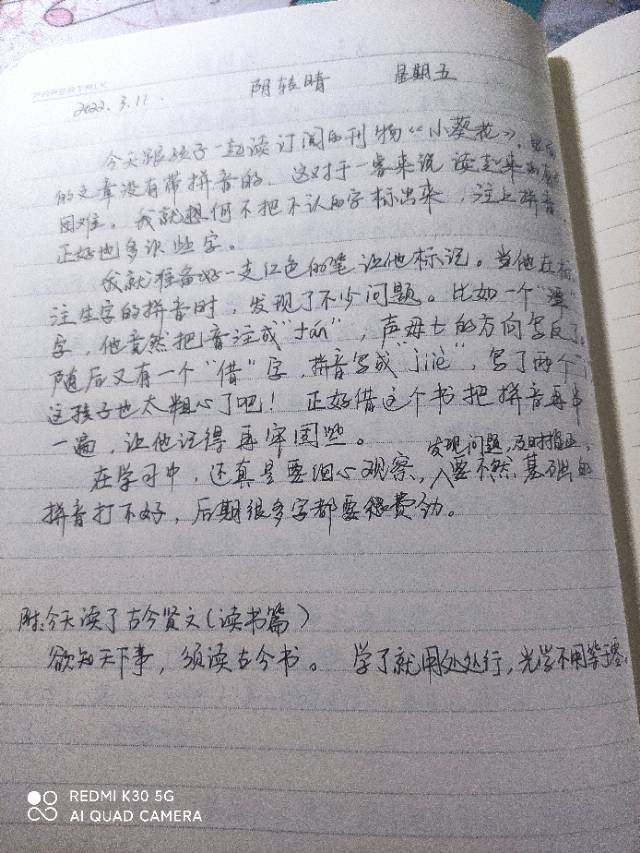 PAPERTALK
2022.3.11. 阴转晴 星期五
今天跟孩子一起读订阅的刊物《小葵花》,里
的文章没有带拼音的。这对于一客来说读起来
困难。我就想何不把不认的字标出来,注上拼音,
正好也多识些字。
我就准备好一支红色的笔让他标记。当他在标
注生字的拼音时,发现了不少问题。比如一个“潭”
字,他竟然把音注成“ ”,声母t的方向写反了。
随后又有一个“借”字,拼音写成“jiè”,写了两个
这孩子也太粗心了吧!正好借这个书把拼音再
一遍,让他记得再牢固些。
在学习中,还真是要细心观察,发现问题,及时指正,要不然基础的
拼音打不好,后期很多字都要很费劲。
附:今天读了古今贤文(读书篇)
欲知天下事,须读古今书。学了就用处处行,光学不用等于零。
REDMI K30 5G
AI QUAD CAMERA